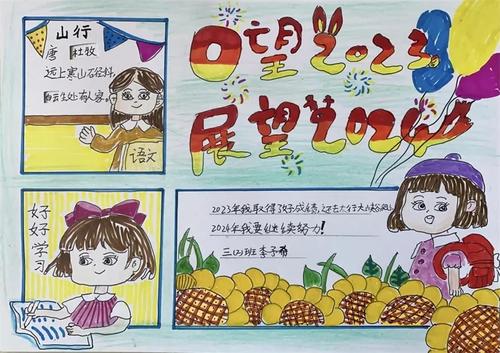 山行
唐 杜牧
远上寒山石径斜
白云生处有人家。
语文
回望2023。
展望2024
好好学习
2023年我取得了好成绩，还去太行大
2024年我要继续努力！
三(2)班 李子